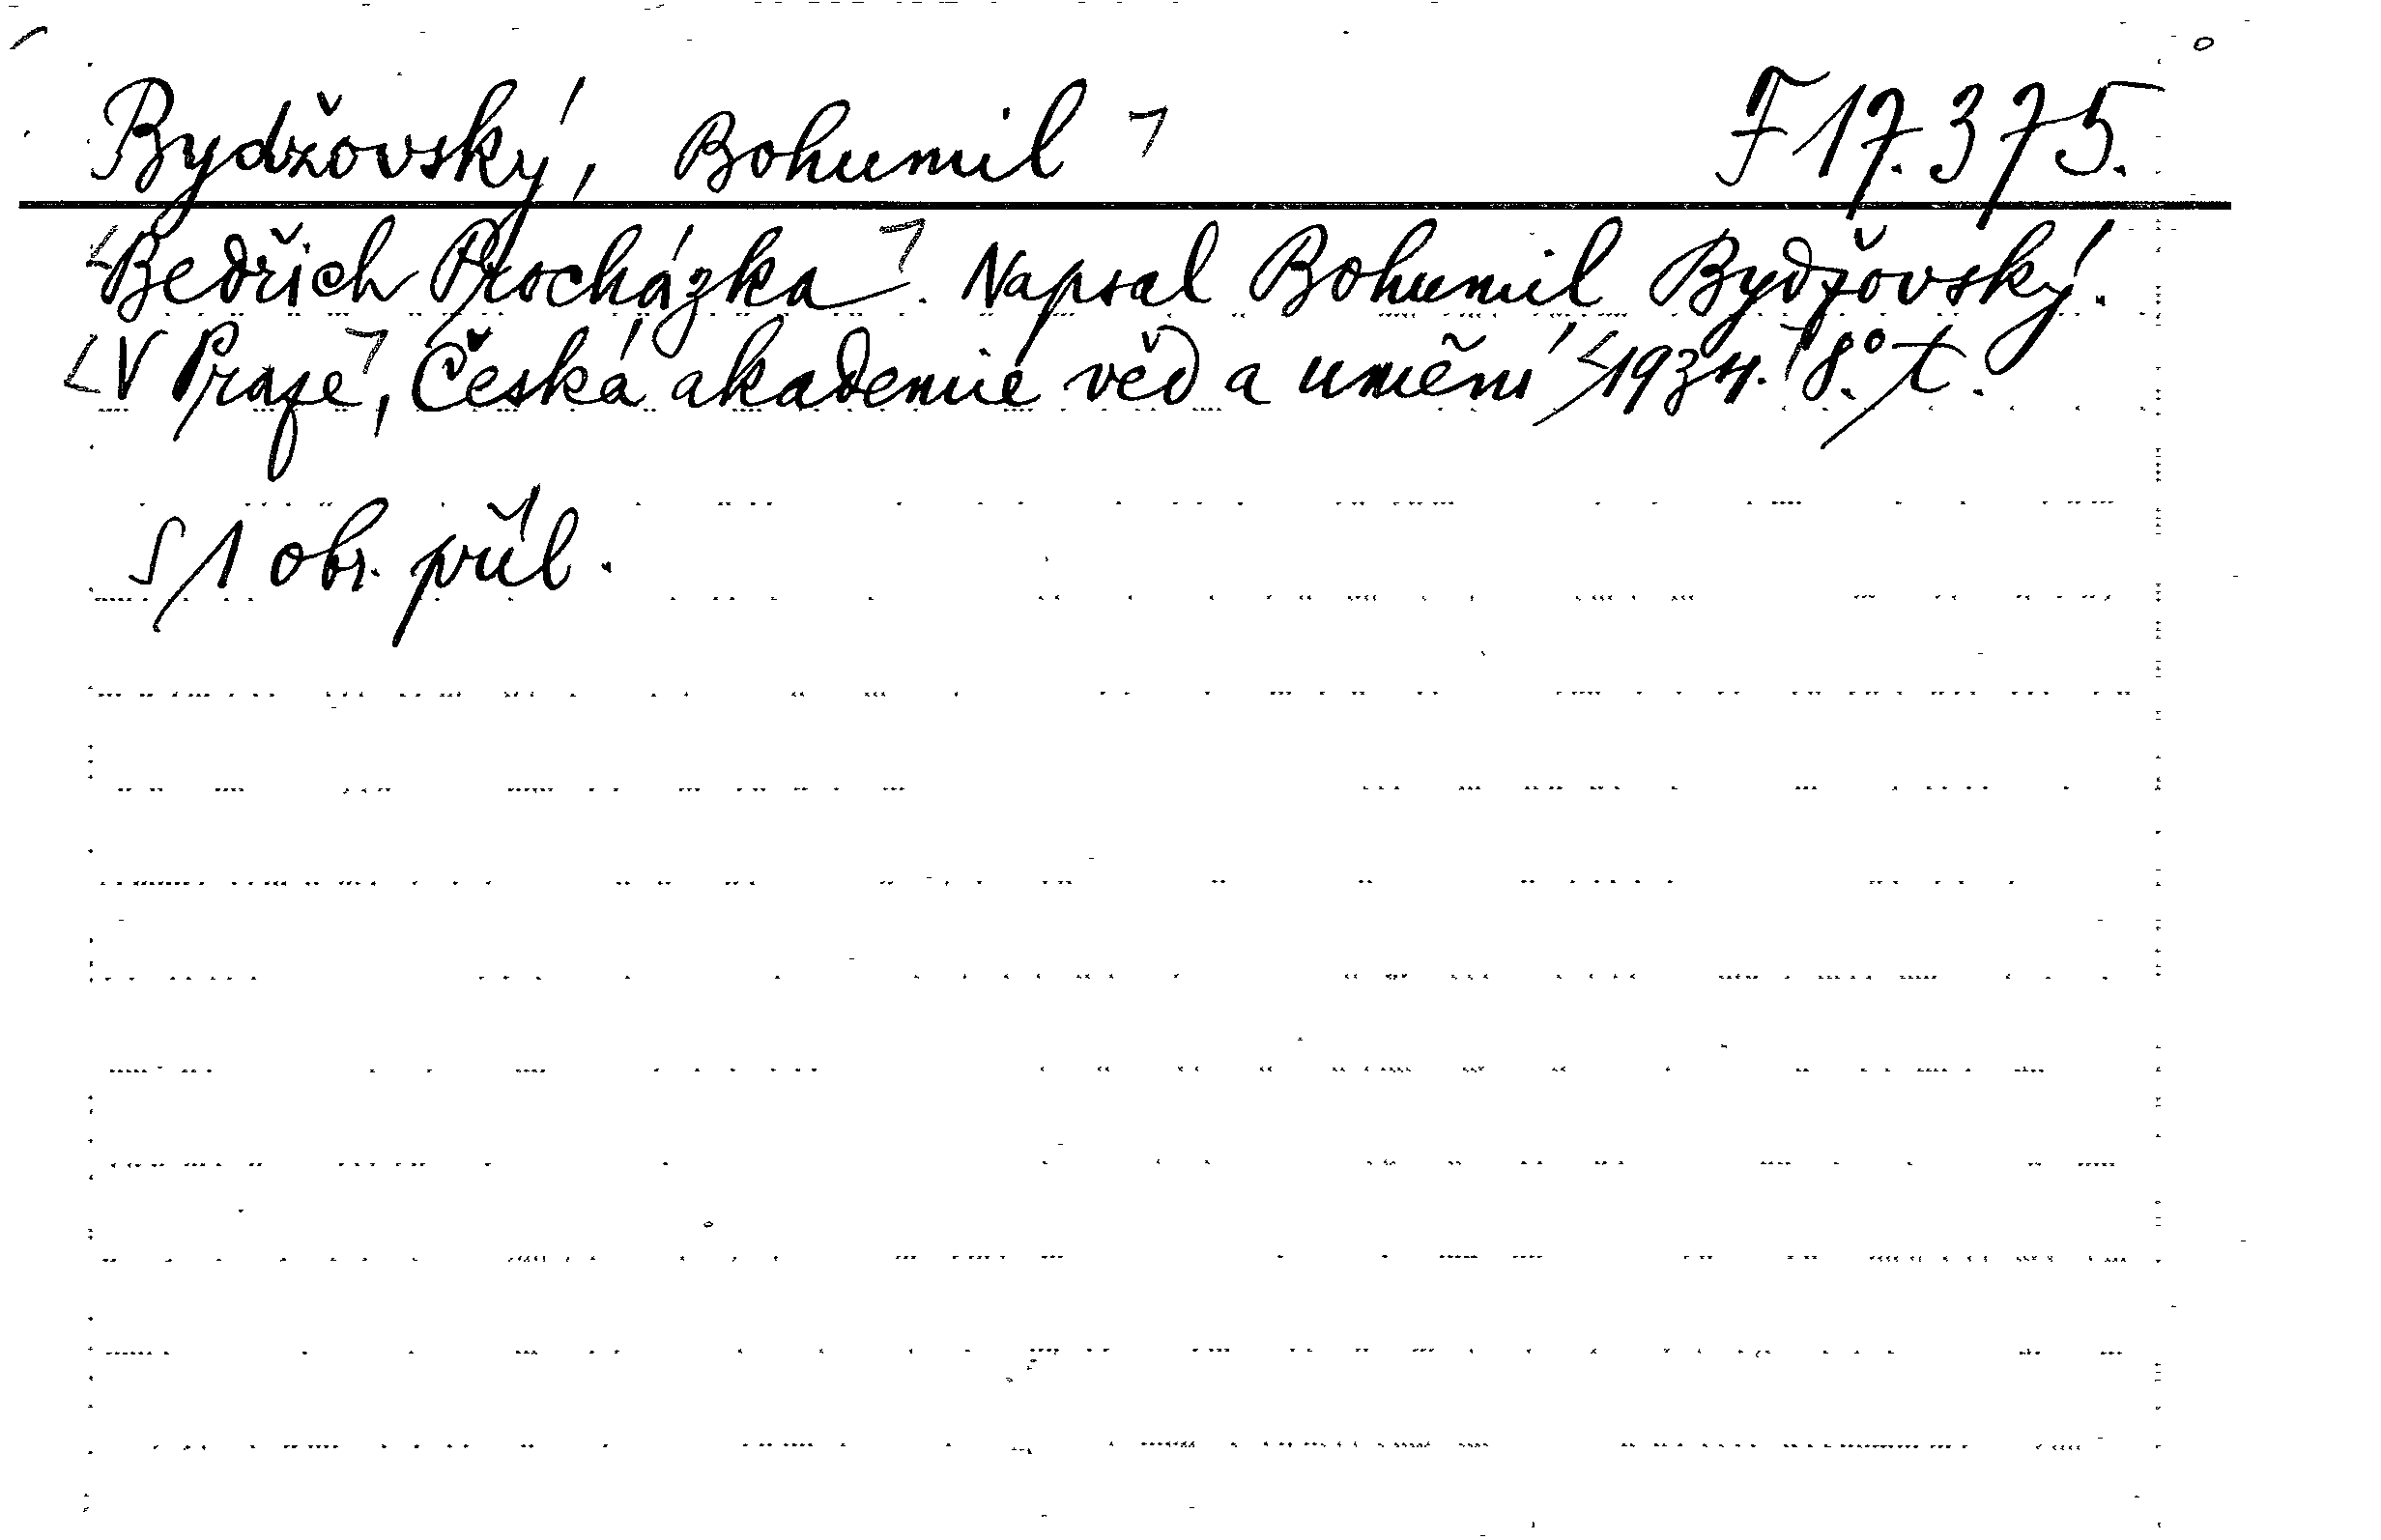 Bydžovský, Bohumil ┐ F 17.375.
<Bedřich Procházka┐. Napsal Bohumil Bydžovský.
<V Praze┐, Česká akademie věd a umění <1934.┐ 8°. t.
S 1 obr. příl.